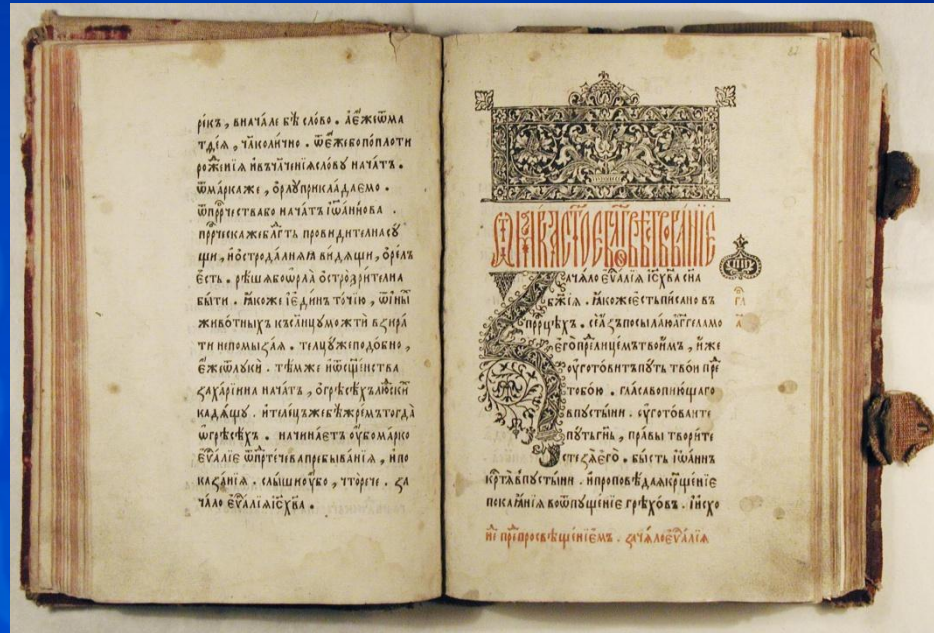 рекъ, вначале бѣ слово. а҆ є҆же ѿ ма
тдея, ч҃ѧколично. ѿ є҆же бо поплоти
рожениїѧ и҆ въч҃ченїѧ слову начат̾.
ѿ марка же, ѻ҆рлу прикладаемо.
ѿ прⷪ҇рчества бо начат̾ і҆ѡаннова.
прⷪ҇рческа же бл҃гть провидителна су
щи, и҆ ѻ҆стро далнѧѧ видѧщи, ѻ҆релъ
єсть. рѣша бо ѻ҆рла ѻ҆строзрителна
быти. ꙗ҆коже і҆ единъ точїю, ѿ ины
животныхъ къ сл҃нцу можетъ взира
ти непомизаѧ. телцу же подобно,
є҆же ѿ луки. тѣмже и҆ ѿ сщ҃енства
захарїина начат̾, ѻ грѣсѣхъ людскїи
кадѧщу. и҆ телецъ же бѣ жремъ тогда
ѡ грѣсѣхъ. начинаетъ оу҆бо марко
є҆ѵ҃алїе ѿ прⷣтечева пребыванїѧ, и҆ по
казанїѧ. слыши оу҆бо, что рече. за
чало є҆ѵ҃алїѧ і҆с҃ хв҃а.
ѿ марка ст҃ое бл҃говѣствованїе
Зачало є҆ѵ҃алїѧ і҆с҃ хв҃а сн҃а
бж҃їѧ. ꙗ҆коже єсть писано въ
прⷪ҇роцѣхъ. се а҆зъ посылаю а҆г҃гела мо
его пред̾ лицемъ твоимъ, и҆же
оу҆готовитъ путь твои пре
тобою. глас̾ вопиющаго
в пустыни. оу҆готоваите
путь гн҃ь, правы творите
стезѧ є҆го. бысть і҆ѡаннъ
крⷭ҇тѧ в пустыни. и҆ проповѣдаѧ крⷳ҇щенїе
покаанїѧ во ѿпущенїе грѣховъ. і҆ исхо
не пред̾ просвѣщенїемъ. зачало є҆ѵ҃алїѧ